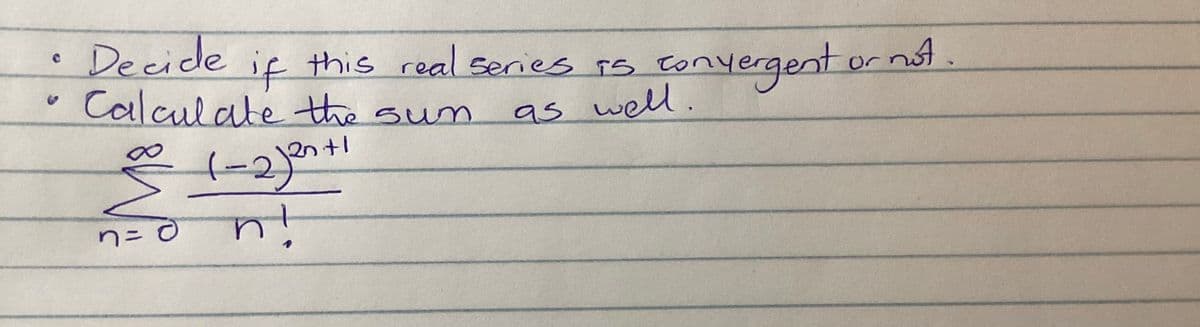 • Decide if this real series is convergent or not.
• Calculate the sum as well.
∞
∑ (-2)^{2n+1} / n!
n=0